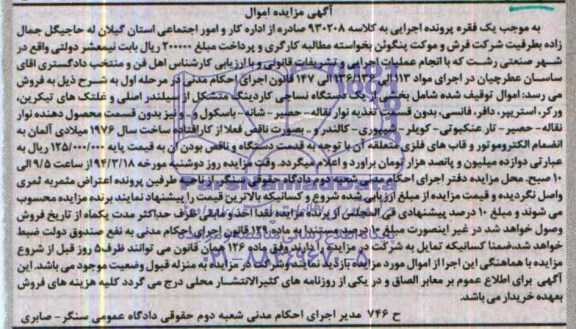 آگهی مزایده اموال
به موجب یک فقره پرونده اجرایی به کلاسه ۹۳۰۲۰۸ صادره از اداره کار و امور اجتماعی استان گیلان له حاجیگل جمال
زاده بطرفیت شرکت فرش و موکت پنگوئن بخواسته مطالبه کارگری و پرداخت مبلغ ۲۰۰۰۰۰ ریال بابت نیمعشر دولتی واقع در
شهر صنعتی رشت که با انجام عملیات اجرائی و تشریفات قانونی و با ارزیابی کارشناس اهل فن و منتخب دادگستری اقای
ساسان عطرچیان در اجرای مواد ۱۱۳ الی ۱۲۶/۱۳۶ الی ۱۴۷ قانون اجرای احکام مدنی در مرحله اول به شرح ذیل به فروش
می رسد: اموال توقیف شده شامل بخشی از یک دستگاه نساجی کاردینگ متشکل از سیلندر اصلی و غلتک های تیکرین،
ورکر، استریپر، دافر، فانسی، بدون قسمت تغذیه نوار نقاله - حصیر - شانه - باسکول و - و نیز بدون قسمت محصول دهنده نوار
نقاله - حصیر - تار عنکبوتی - کویلر - کالندر و - بصورت ناقص فعلا از کارافتاده ساخت سال ۱۹۷۶ میلادی آلمان به
انضمام الکتروموتور و قاب های فلزی متعلقه آن با توجه به قدمت دستگاه و ناقص بودن آن به قیمت پایه ۱۲۵/۰۰۰/۰۰۰ ریال به
عبارتی دوازده میلیون و پانصد هزار تومان براورد و اعلام میگردد. وقت مزایده روز دوشنبه مورخه ۹۴/۳/۱۸ از ساعت ۹/۵ الی
۱۰ صبح. محل مزایده دفتر اجرای احکام مدنی شعبه دوم دادگاه حقوقی سنگر از ناحیه طرفین پرونده اعتراض مثمریه ثمری
واصل نگردیده و قیمت مزایده از مبلغ ارزیابی شده شروع و کسانیکه بالاترین قیمت را پیشنهاد نمایند برنده مزایده محسوب
می شوند و مبلغ ۱۰ درصد پیشنهادی فی المجلس از برنده مزایده نقدا اخذ و مابقی ظرف حداکثر مدت یکماه از تاریخ فروش
وصول خواهد شد در غیر اینصورت مبلغ ۱۰ درصد مستندا به ماده ۱۲۹ قانون اجرای احکام مدنی به نفع صندوق دولت ضبط
خواهد شد، ضمنا کسانیکه تمایل به شرکت در مزایده را دارند وفق ماده ۱۲۶ همان قانون می توانند ظرف ۵ روز قبل از شروع
مزایده با هماهنگی این اجرا از اموال مورد مزایده بازدید نمایند و شرکت در مزایده به منزله قبول وضعیت موجود می باشد. این
آگهی برای اطلاع عموم بر معابر الصاق و در یکی از روزنامه های کثیرالانتشار محلی درج می گردد کلیه هزینه های فروش
بعهده خریدار می باشد.
ح ۷۴۶ مدیر اجرای احکام مدنی شعبه دوم حقوقی دادگاه عمومی سنگر - صابری